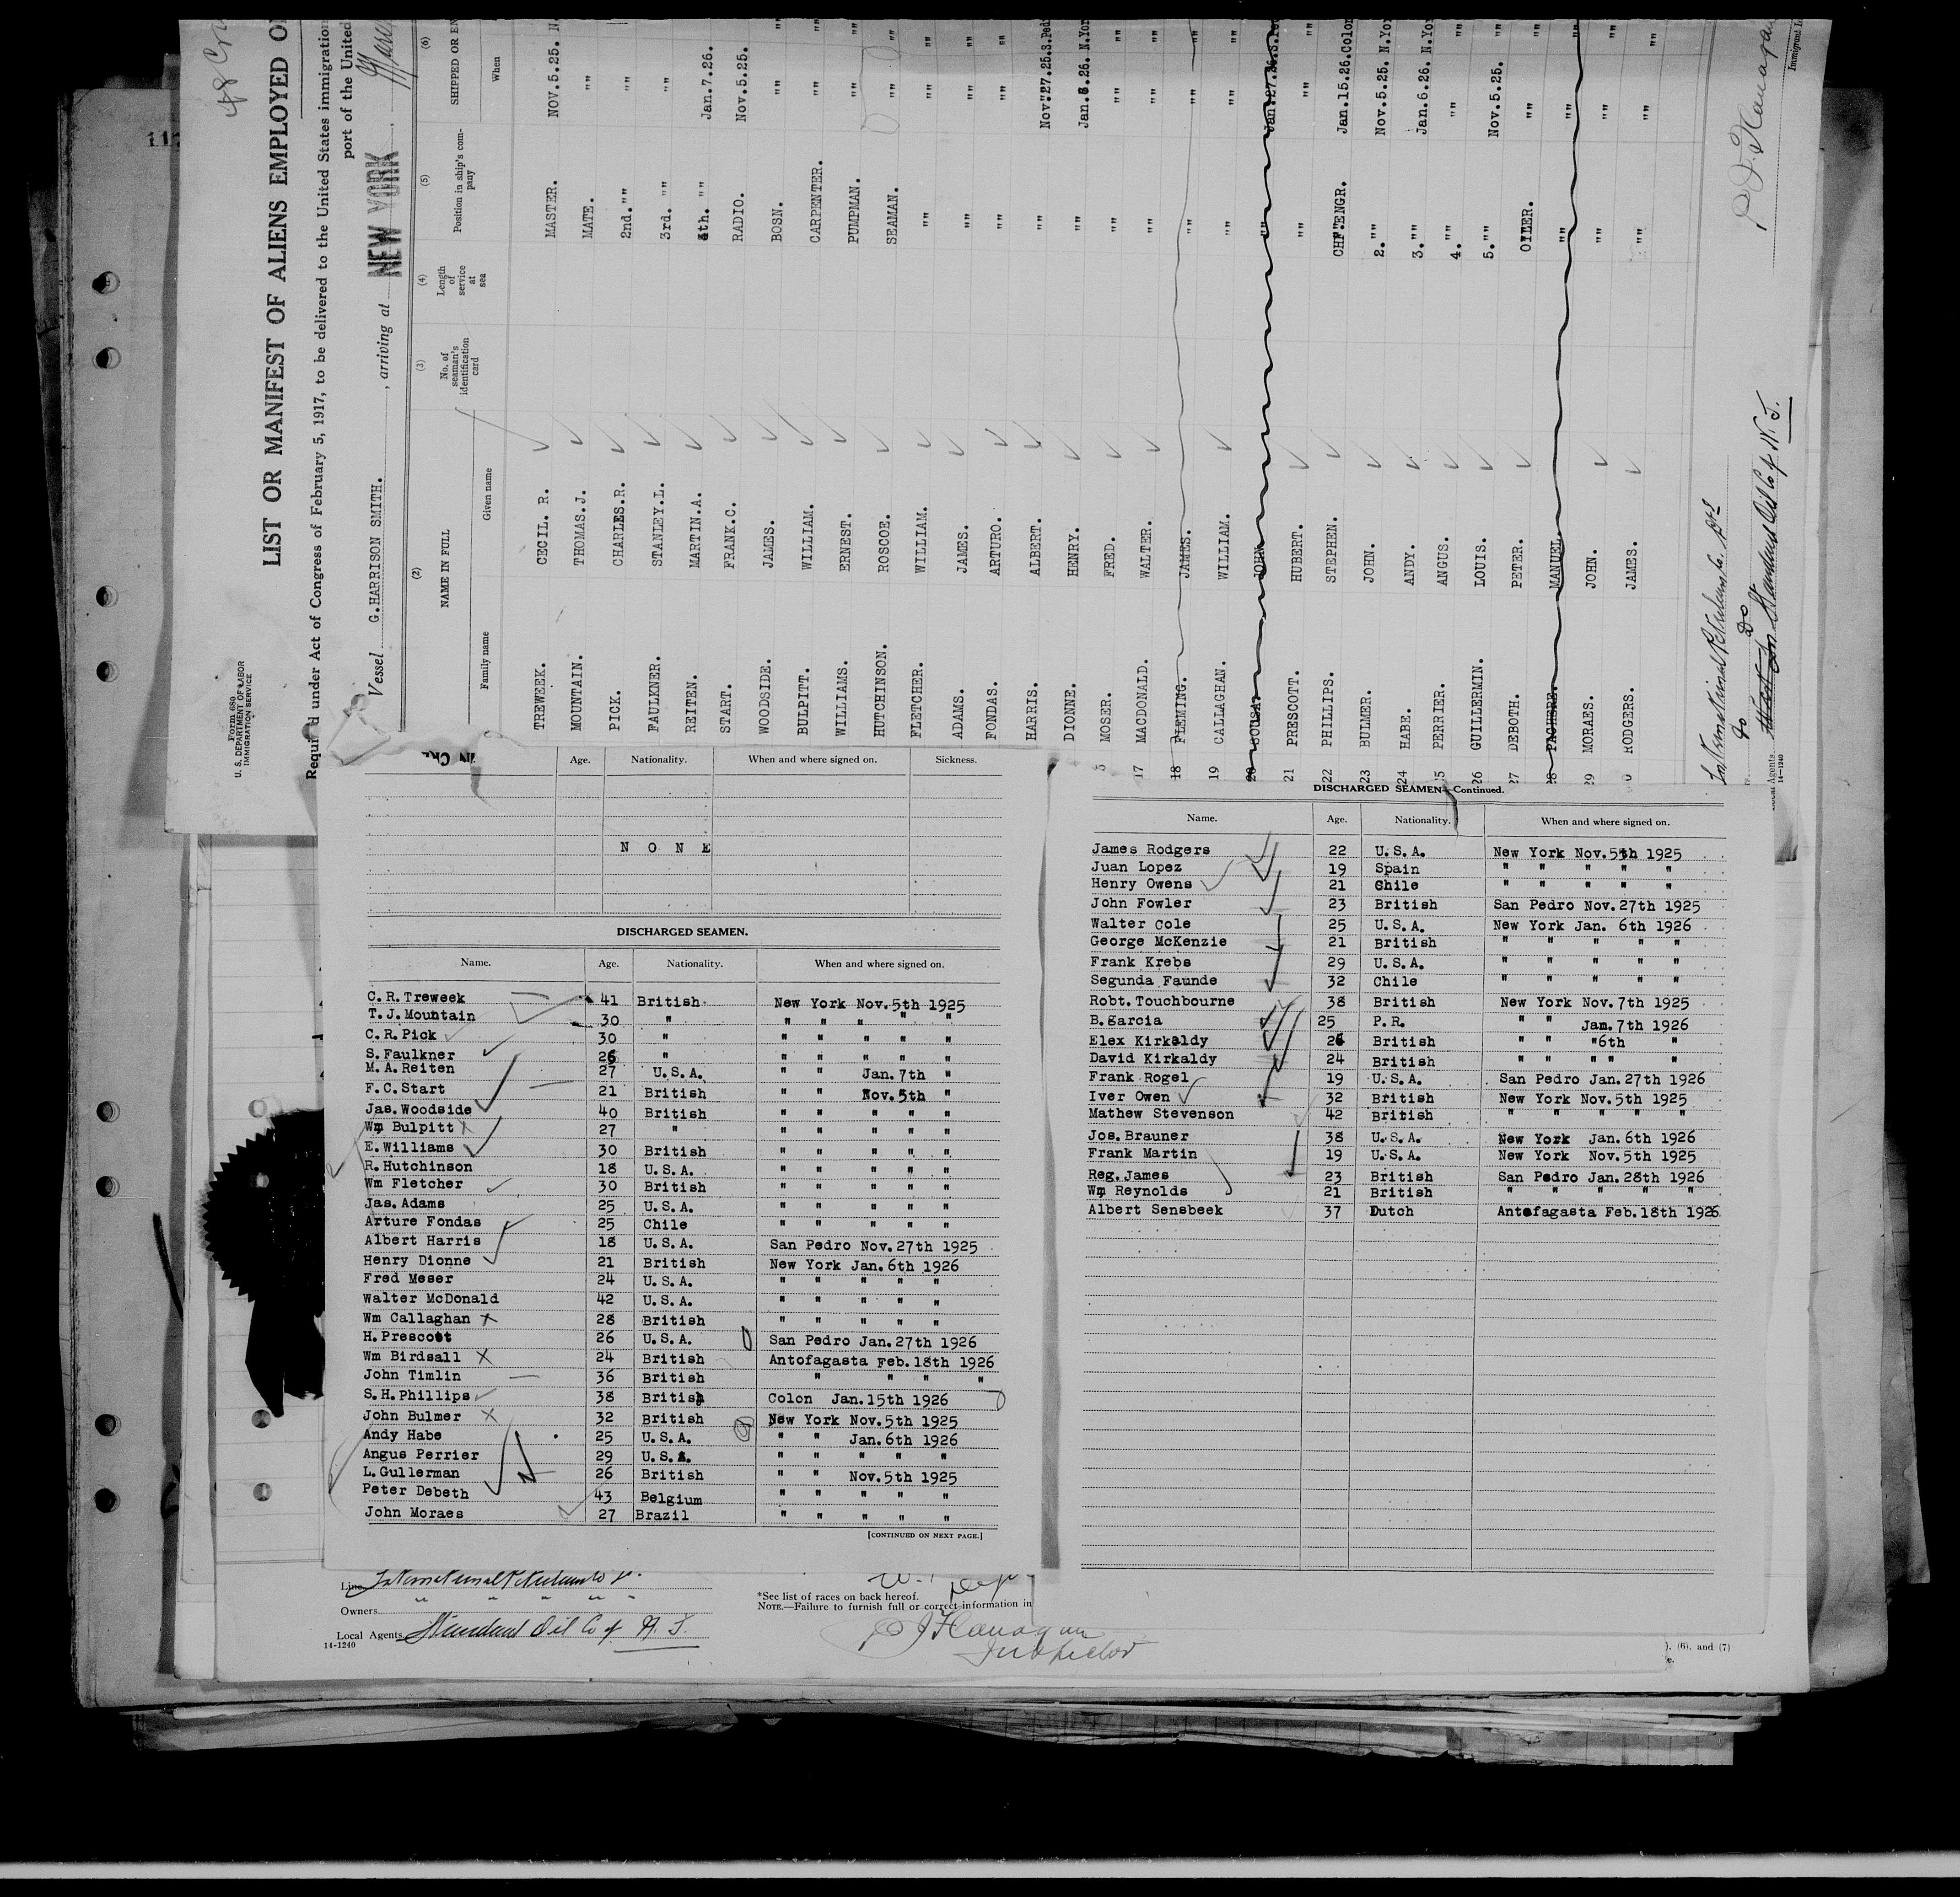 LIST OR MANIFEST OF ALIENS EMPLOYED O
Form 689
U. S. DEPARTMENT OF LABOR
IMMIGRATION SERVICE
Required under Act of Congress of February 5, 1917, to be delivered to the United States immigration
port of the United
Vessel G.HARRISON SMITH. , arriving at NEW YORK
(2) (3) (4) (5) (6)
NAME IN FULL No. of seaman's identification card Length of service at sea Position in ship's company SHIPPED OR EN
Family name Given name When
TREWEEK. CECIL. R. MASTER. NOV.5.25. N.
MOUNTAIN. THOMAS.J. MATE. "" ""
PICK. CHARLES.R. 2nd."" ""
FAULKNER. STANLEY.L. 3rd. "" ""
REITEN. MARTIN.A. 4th. "" Jan.7.26.
START. FRANK.C. RADIO. Nov.5.25.
WOODSIDE. JAMES. BOSN. "" ""
BULPITT. WILLIAM. CARPENTER. "" ""
WILLIAMS. ERNEST. PUMPMAN. "" ""
HUTCHINSON. ROSCOE. SEAMAN. "" ""
FLETCHER. WILLIAM. "" "" ""
ADAMS. JAMES. "" "" ""
FONDAS. ARTURO. "" "" ""
HARRIS. ALBERT. "" Nov.27.25.S.Ped
DIONNE. HENRY. "" Jan.6.26. N.Yor
MOSER. FRED. "" "" ""
17 MACDONALD. WALTER. "" "" ""
18 FLEMING. JAMES. "" "" ""
19 CALLAGHAN. WILLIAM. "" "" ""
20 SOUSA. JOHN. "" Jan.27.26.S.Ped
21 PRESCOTT. HUBERT. "" "" ""
22 PHILLIPS. STEPHEN. CHF.ENGR. Jan.15.26.Colon
23 BULMER. JOHN. 2."" Nov.5.25. N.Yor
24 HABE. ANDY. 3."" Jan.6.26. N.Yor
25 PERRIER. ANGUS. 4."" "" ""
26 GUILLERMIN. LOUIS. 5."" Nov.5.25. ""
27 DEBOTH. PETER. OILER. "" ""
28 MANUEL. "" "" ""
29 MORAES. JOHN. "" "" ""
RODGERS. JAMES. "" "" ""
International Petroleum Co.
Do
Standard Oil Co of N. J.
Local Agents
14-1240
P J Flanagan
Immigrant
Age. Nationality. When and where signed on. Sickness.
N O N E
DISCHARGED SEAMEN.
Name. Age. Nationality. When and where signed on.
C.R.Treweek 41 British New York Nov.5th 1925
T.J.Mountain 30 " " " " " "
C.R.Pick 30 " " " " " "
S.Faulkner 26 " " " " " "
M.A.Reiten 27 U.S.A. " " Jan.7th "
F.C.Start 21 British " " Nov.5th "
Jas.Woodside 40 British " " " " "
Wm Bulpitt 27 " " " " " "
E.Williams 30 British " " " " "
R.Hutchinson 18 U.S.A. " " " " "
Wm Fletcher 30 British " " " " "
Jas.Adams 25 U.S.A. " " " " "
Arture Fondas 25 Chile " " " " "
Albert Harris 18 U.S.A. San Pedro Nov.27th 1925
Henry Dionne 21 British New York Jan.6th 1926
Fred Meser 24 U.S.A. " " " " "
Walter McDonald 42 U.S.A. " " " " "
Wm Callaghan 28 British " " " " "
H.Prescott 26 U.S.A. San Pedro Jan.27th 1926
Wm Birdsall 24 British Antofagasta Feb.18th 1926
John Timlin 36 British " " " "
S.H.Phillips 38 British Colon Jan.15th 1926
John Bulmer 32 British New York Nov.5th 1925
Andy Habe 25 U.S.A. " " Jan.6th 1926
Angus Perrier 29 U.S.A. " " " " "
L.Gullerman 26 British " " Nov.5th 1925
Peter Debeth 43 Belgium " " " " "
John Moraes 27 Brazil " " " " "
[CONTINUED ON NEXT PAGE.]
DISCHARGED SEAMEN—Continued.
Name. Age. Nationality. When and where signed on.
James Rodgers 22 U.S.A. New York Nov.5th 1925
Juan Lopez 19 Spain " " " " "
Henry Owens 21 Chile " " " " "
John Fowler 23 British San Pedro Nov.27th 1925
Walter Cole 25 U.S.A. New York Jan. 6th 1926
George McKenzie 21 British " " " " "
Frank Krebs 29 U.S.A. " " " " "
Segunda Faunde 32 Chile " " " " "
Robt.Touchbourne 38 British New York Nov.7th 1925
B.Garcia 25 P.R. " " Jan.7th 1926
Elex Kirkaldy 26 British " " "6th "
David Kirkaldy 24 British " " " " "
Frank Rogel 19 U.S.A. San Pedro Jan.27th 1926
Iver Owen 32 British New York Nov.5th 1925
Mathew Stevenson 42 British " " " " "
Jos.Brauner 38 U.S.A. New York Jan.6th 1926
Frank Martin 19 U.S.A. New York Nov.5th 1925
Reg.James 23 British San Pedro Jan.28th 1926
Wm Reynolds 21 British " " " " "
Albert Sensbeek 37 Dutch Antofagasta Feb.18th 1926
Line International Petroleum Co
Owners " " " "
Local Agents Standard Oil Co of N. J.
14-1240
*See list of races on back hereof.
NOTE.—Failure to furnish full or correct information in
P J Flanagan
Inspector
), (6), and (7)
e.